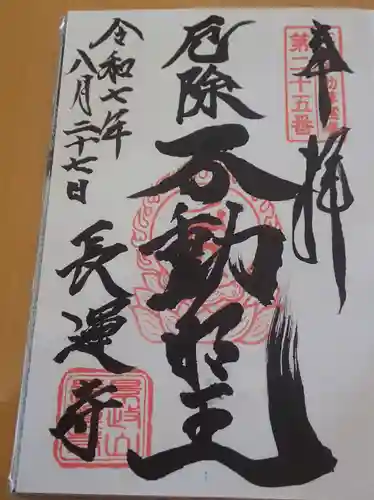 奉拝
第二十五番
厄除
不動明王
長運寺
令和七年
八月二十七日